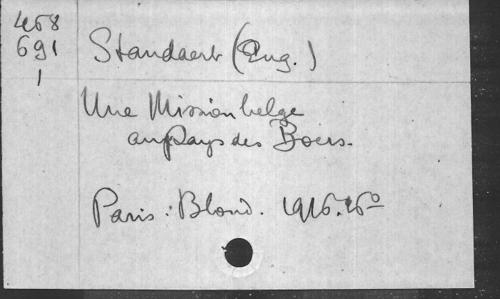 468
691
1
Standaert (Eug.)
Une Mission belge
au Pays des Boers.
Paris: Bloud. 1916. 16º